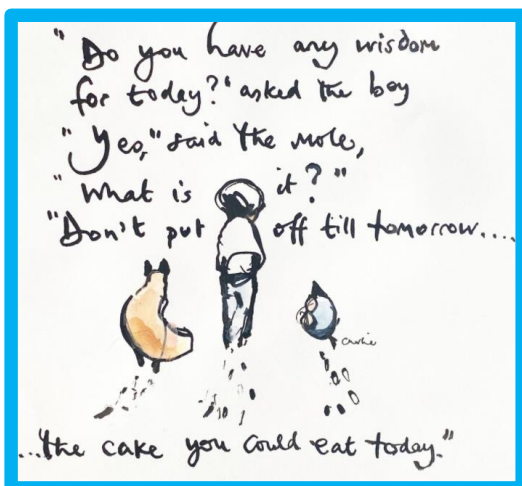 "Do you have any wisdom
for today?' asked the boy
"Yes," said the mole,
"What is it?"
"Don't put off till tomorrow....
Charlie
...the cake you could eat today."